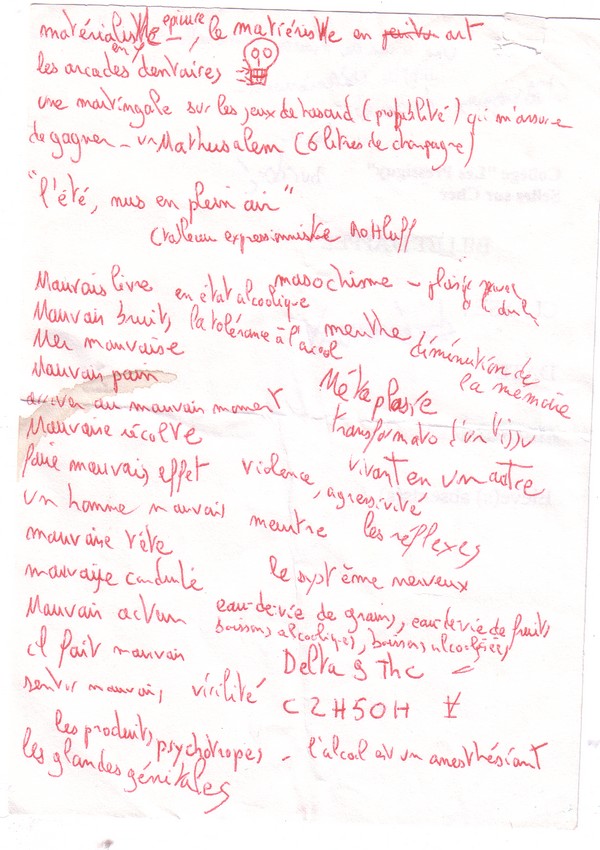 matérialiste épicure, le matiériste en peinture art
les arcades dentaires
une martingale sur les jeux de hasard (probabilité) qui m'assure
de gagner - un Mathusalem (6 litres de champagne)
"l'été, nus en plein air"
(tableau expressionniste Rottluff
Mauvais livre
en état alcoolique
masochisme - plaisir
Mauvais bruits
la tolérance à l'alcool
menthe
diminution de
la mémoire
Mer mauvaise
Mauvais pain
Métaplasie
arriver au mauvais moment
transformato d'un tissu
vivant en un autre
Mauvaise récolte
faire mauvais effet
violence, agressivité
un homme mauvais
meurtre
les réflexes
mauvaise tête
le système nerveux
mauvaise conduite
Mauvais
eau-de-vie de grains, eau-de-vie de fruits
boissons alcooliques, boissons alcoolisées
il fait mauvais
Delta 9 THC
sentir mauvais, virilité
C2H5OH
les produits psychotropes - l'alcool est un anesthésiant
les glandes génitales